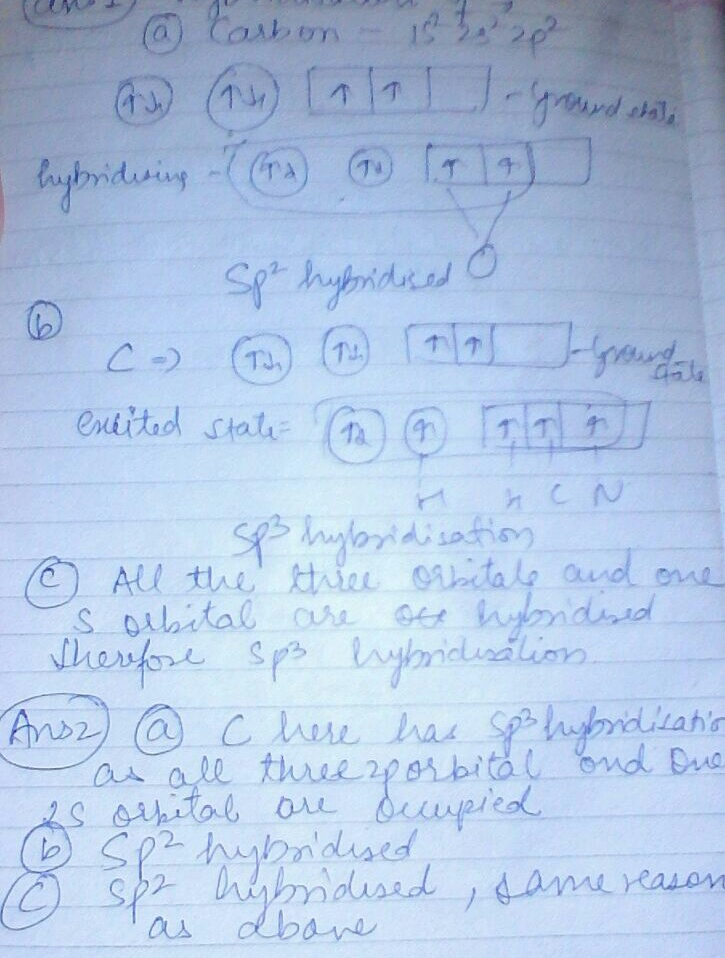 (a) Carbon - 1s² 2s² 2p²
- Ground state
hybridising -
Sp² hybridised
(b)
C => - Ground state
excited state =
H H C N
Sp3 hybridisation
(c) All the three orbitals and one
s orbital are hybridised
therefore Sp3 hybridisation
Ans2 (a) C here has Sp3 hybridisatio
as all three 2p orbital and One
2s orbital are occupied
(b) Sp² hybridised
(c) Sp2 hybridised, same reason
as above